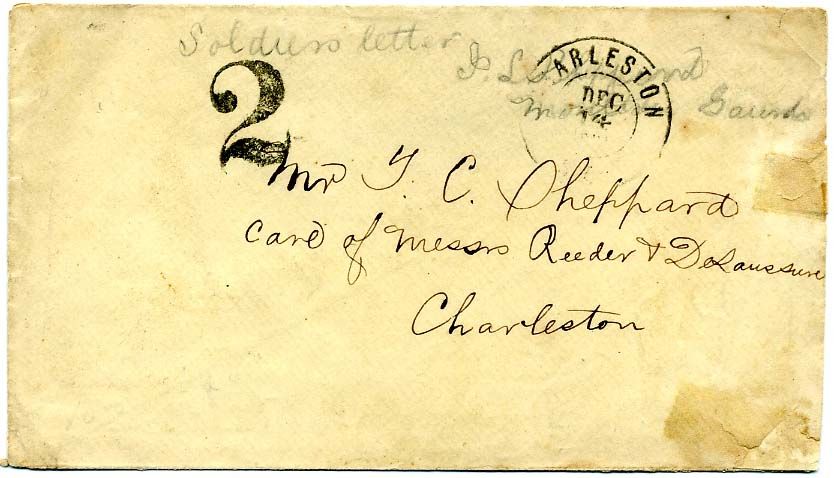 Soldiers letter
J. L. Sheppard
ARLESTON
DEC
14
2
Mr T. C. Sheppard
Care of Messrs Reeder & DeSaussure
Charleston